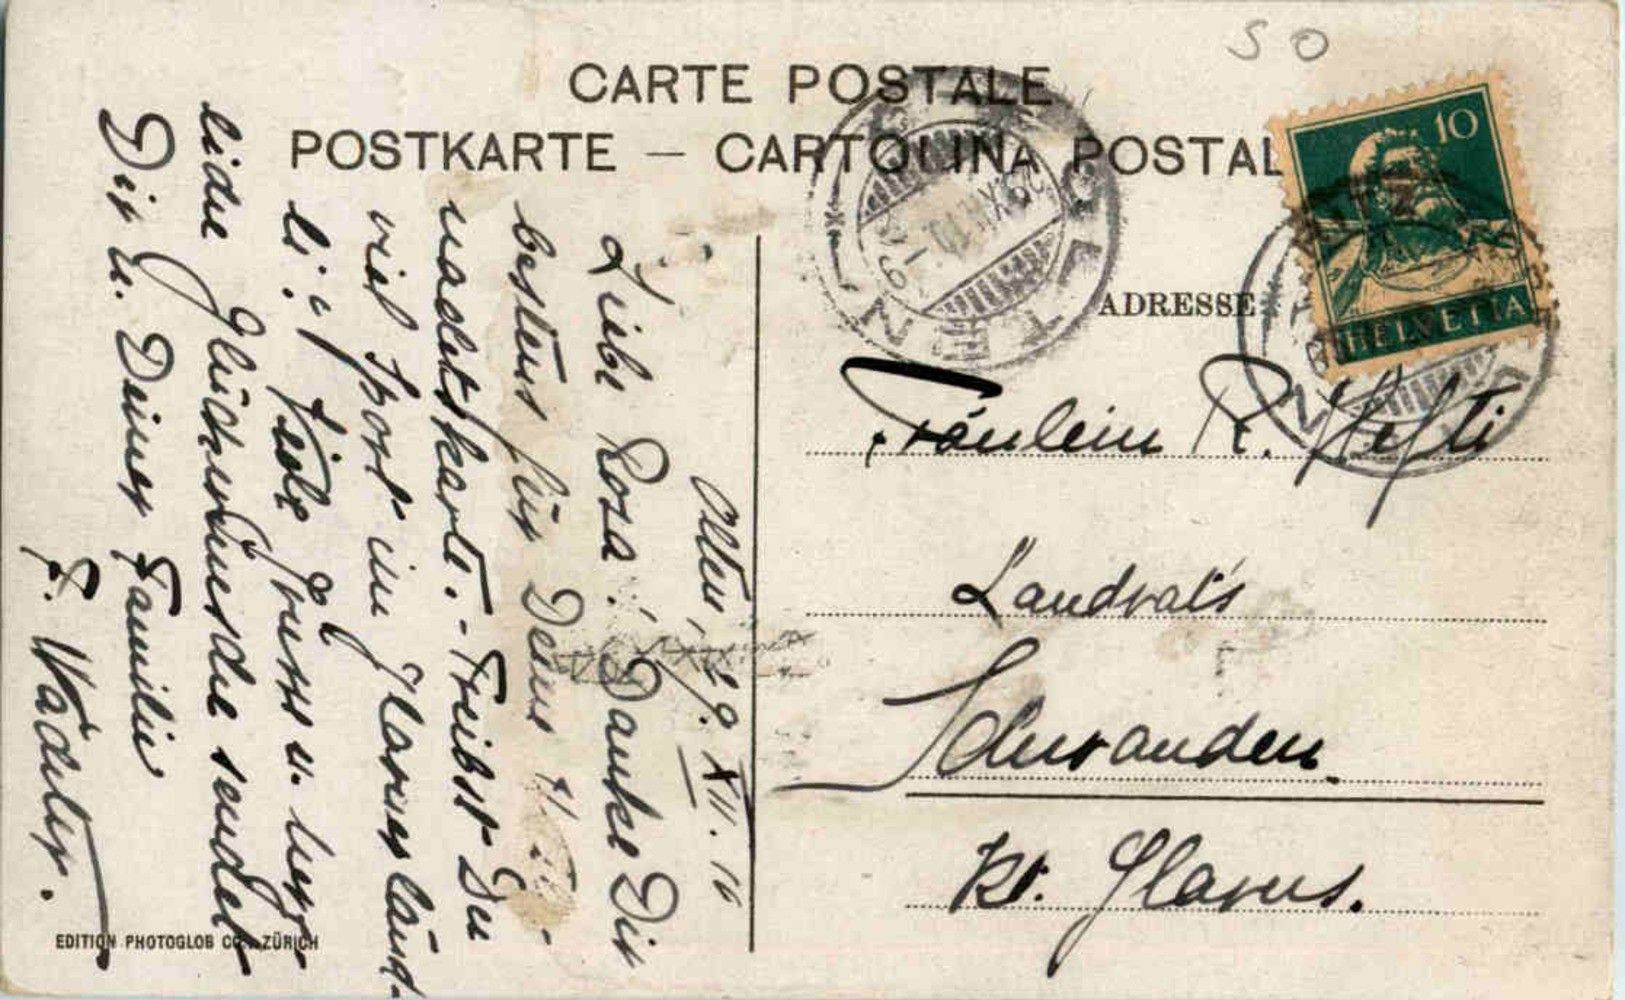 SO
CARTE POSTALE
POSTKARTE — CARTOLINA POSTAL
10
HELVETIA
OLTEN
ADRESSE
Fräulein R. Hefti
Landrats
Schwanden.
Kt. Glarus.
Olten, 29. XII. 10
Liebe Rosa! Danke Dir
bestens für Deine
nachtskarte. - Treibst Du
viel Sport im Glarnerländ-
li? Viele Grüsse u. herz-
liche Glückwünsche sendet
Dir u. Deiner Familie
F.
EDITION PHOTOGLOB CO. ZÜRICH